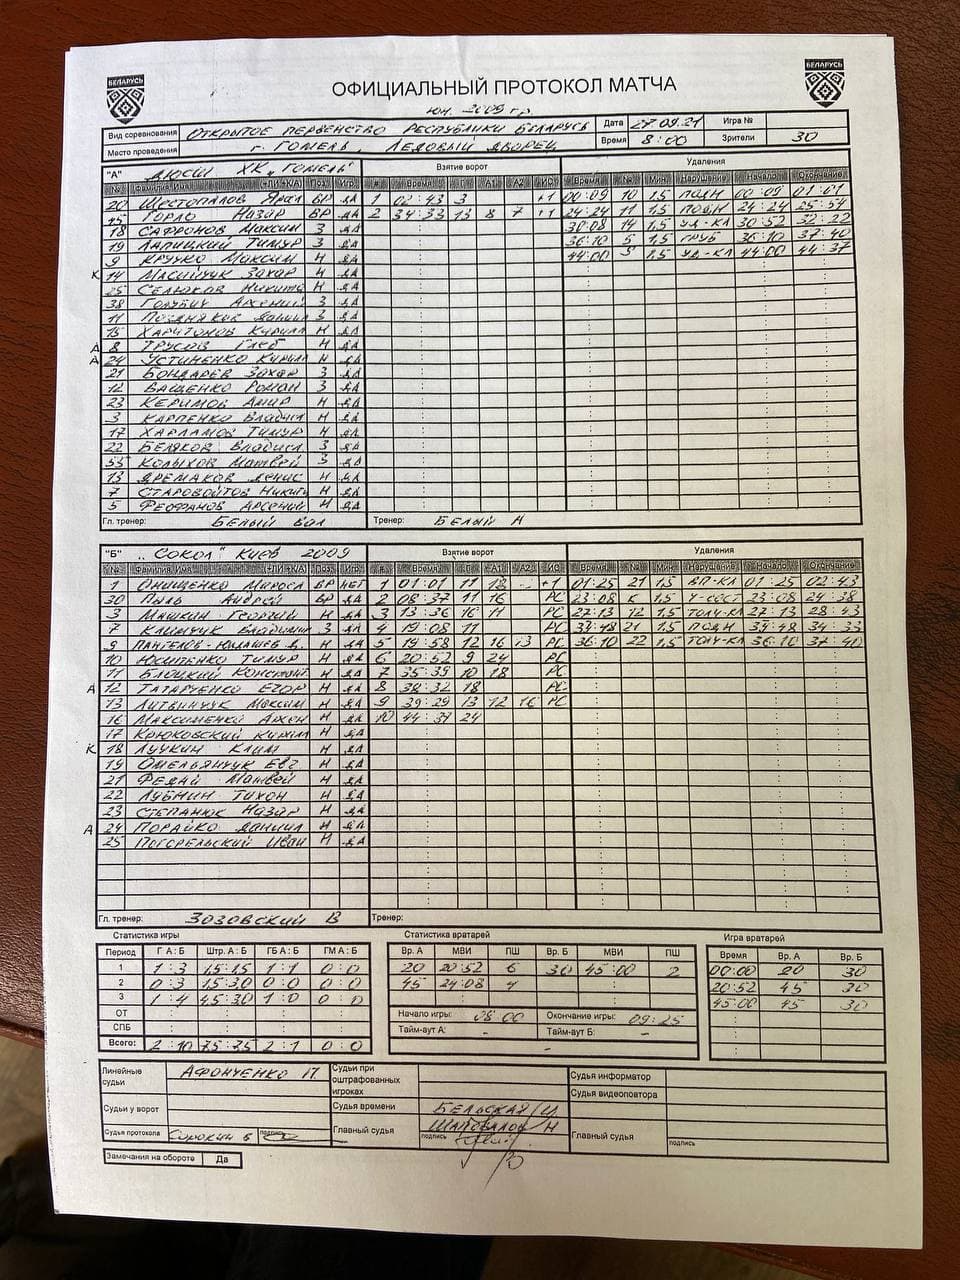 БЕЛАРУСЬ
БЕЛАРУСЬ
ОФИЦИАЛЬНЫЙ ПРОТОКОЛ МАТЧА
юн. 2009 г.р.
Вид соревнования ОТКРЫТОЕ ПЕРВЕНСТВО РЕСПУБЛИКИ БЕЛАРУСЬ Дата 27.09.21 Игра №
Место проведения г. ГОМЕЛЬ, ЛЕДОВЫЙ ДВОРЕЦ Время 8:00 Зрители 30
"А" ДЮСШ ХК „ГОМЕЛЬ" Взятие ворот Удаления
№ Фамилия Имя (+ЛИ +К/А) Поз. Игр. # Время Г А1 А2 ИС Время № Мин. Нарушение Начало Окончание
20 ШЕСТОПАЛОВ ВР ДА 1 02:43 3 +1 00:09 10 1,5 ПОДН 00:09 01:01
45 ГОРЛО Назар ВР ДА 2 34:33 13 8 7 +1 24:24 11 1,5 ПОДН 24:24 25:54
18 САФРОНОВ Максим З ДА 30:08 14 1,5 УД-КЛ 30:52 32:22
19 ЛАПИЦКИЙ ТИМУР З ДА 36:10 5 1,5 ГРУБ 36:10 37:40
9 КРУЧКО Максим Н ДА 44:00 5 1,5 УД-КЛ 44:00 44:37
К 14 Захар Н ДА
25 СЕЛЮКОВ Никита Н ДА
38 ГОЛУБИЧ Арсений З ДА
11 ПОЗДНЯКОВ Данила З ДА
15 ХАРИТОНОВ Кирилл Н ДА
А 8 ТРУСОВ Глеб Н ДА
А 24 УСТИНЕНКО Кирилл Н ДА
21 БОНДАРЕВ Захар З ДА
12 ВАЩЕНКО РОМАН З ДА
23 КЕРИМОВ АМИР Н ДА
3 КАРПЕНКО Владисл Н ДА
17 ХАРЛАМОВ ТИМУР Н ДА
22 БЕЛЯКОВ Владисл З ДА
55 КОЛЫХОВ Матвей З ДА
13 ДРЕМАКОВ ДЕНИС Н ДА
7 СТАРОВОЙТОВ Никита Н ДА
5 ФЕОФАНОВ Арсений Н ДА
Гл. тренер: БЕЛЫЙ Тренер: БЕЛЫЙ А
"Б" „СОКОЛ" КИЕВ 2009 Взятие ворот Удаления
№ Фамилия Имя (+ЛИ +К/А) Поз. Игр. # Время Г А1 А2 ИС Время № Мин. Нарушение Начало Окончание
1 ОНИЩЕНКО Миросл ВР НЕТ 1 01:01 11 12 - +1 01:25 21 1,5 ВП-КЛ 01:25 02:43
30 ПЫЛЬ Андрей ВР ДА 2 08:37 11 16 РС 23:08 К 1,5 Ч-СОСТ 23:08 24:38
3 МАШКИН Георгий Н ДА 3 13:36 16 11 РС 27:13 12 1,5 ТОЛЧ-КЛ 27:13 28:43
7 КЛИМЧУК Владимир З ДА 4 19:08 11 РС 21 1,5 ПОДН 34:33
9 Н ДА 5 19:58 12 16 13 РС 36:10 22 1,5 ТОЛЧ-КЛ 36:10 37:40
10 ЮСИПЕНКО ТИМУР Н ДА 6 20:52 9 24 РС
11 БЛОЦКИЙ Констант Н ДА 7 35:39 10 18 РС
А 12 ТАТАРЧЕНКО ЕГОР Н ДА 8 38:32 18 РС
13 ЛИТВИНЧУК Максим Н ДА 9 39:29 13 12 16 РС
16 МАКСИМЕНКО Н ДА 10 44:37 24
17 КРЮКОВСКИЙ Н ДА
К 18 ЛУЧКИН КЛИМ Н ДА
19 ОМЕЛЬЯНЧУК ЕВГ Н ДА
21 ФЕДАЙ Матвей Н ДА
22 ЛУБНИН ТИХОН Н ДА
23 СТЕПАНЮК НАЗАР Н ДА
А 24 ПОРАЙКО ДАНИИЛ Н ДА
25 ПОГОРЕЛЬСКИЙ ИВАН Н ДА
Гл. тренер: ЗОЗОВСКИЙ В Тренер:
Статистика игры Статистика вратарей Игра вратарей
Период Г А : Б Штр. А : Б ГБ А : Б ГМ А : Б Вр. А МВИ ПШ Вр. Б МВИ ПШ Время Вр. А Вр. Б
1 1:3 1,5:1,5 1:1 0:0 20 20:52 6 30 45:00 2 00:00 20 30
2 0:3 1,5:3,0 0:0 0:0 45 24:08 4 20:52 45 30
3 1:4 4,5:3,0 1:0 0:0 45:00 45 30
ОТ Начало игры: 08:00 Окончание игры: 09:25
СПБ Тайм-аут А: - Тайм-аут Б: -
Всего: 2:10 7,5:7,5 2:1 0:0 -
Линейные судьи АФОНЧЕНКО П. Судьи при оштрафованных игроках Судья информатор
Судьи у ворот Судья времени БЕЛЬСКАЯ И. Судья видеоповтора
Судья протокола Сорокин подпись Главный судья ШАПОВАЛОВ Н подпись Главный судья подпись
Замечания на обороте Да